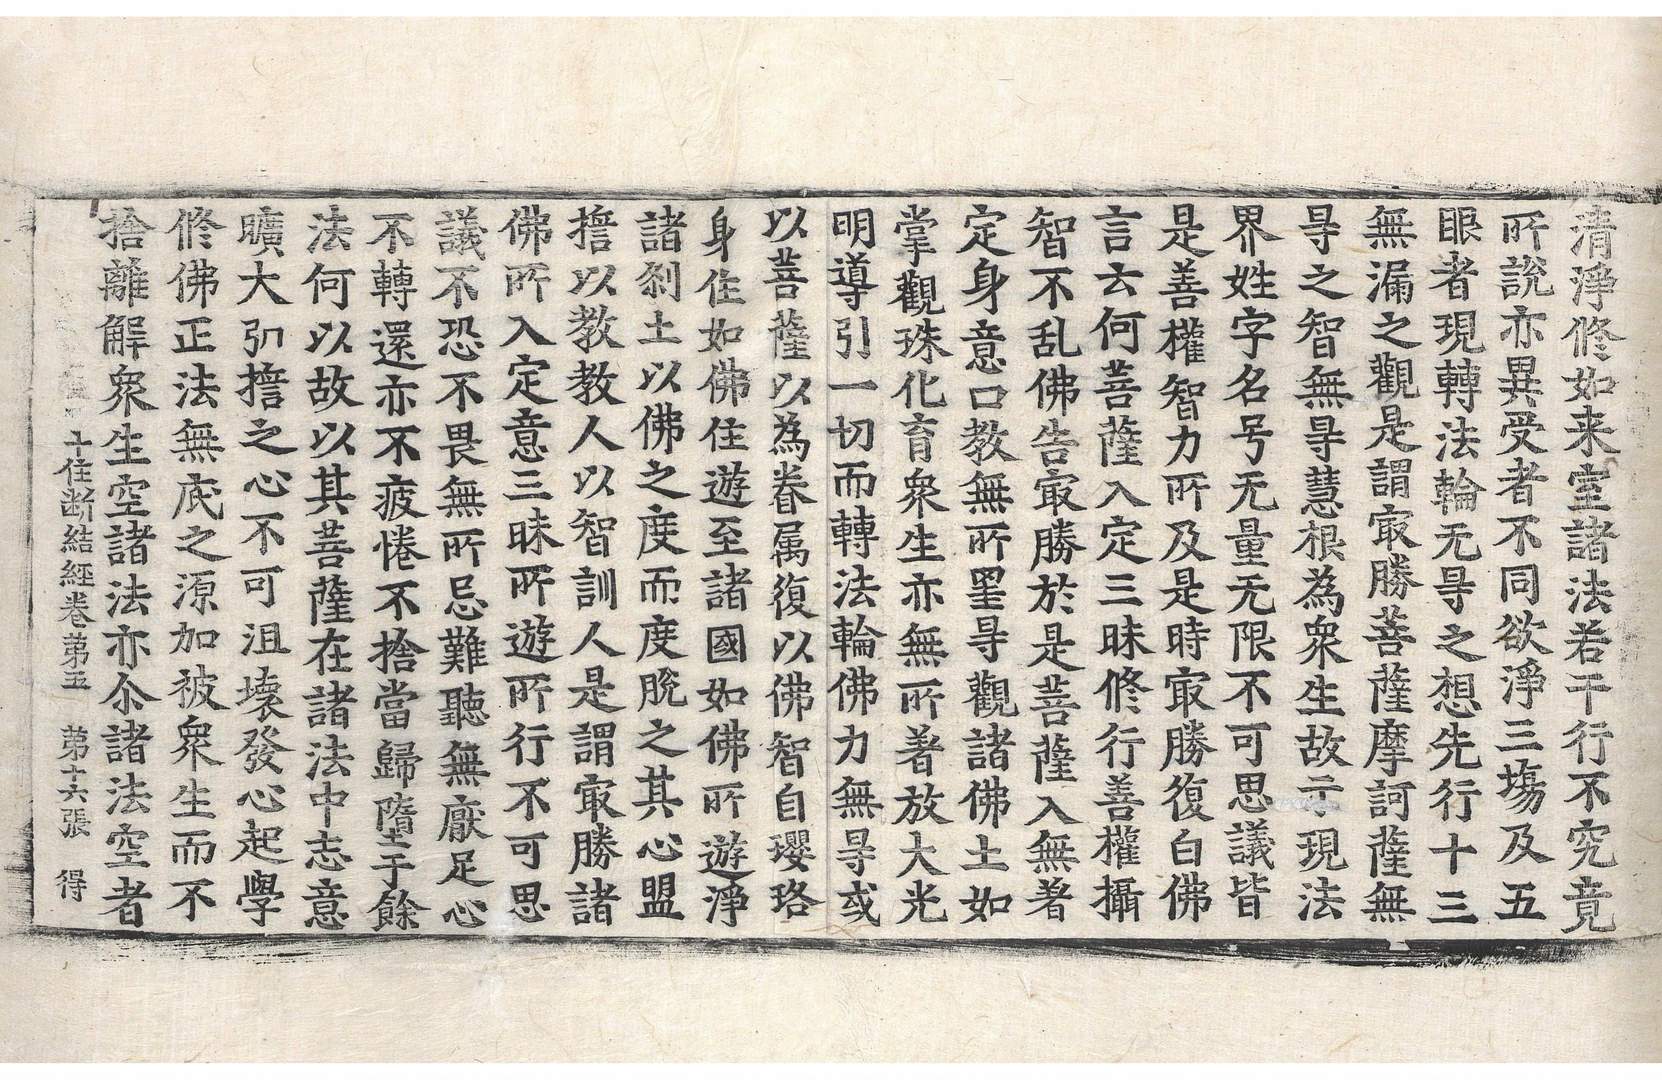 清淨修如来室諸法若干行不究竟
所說亦異受者不同欲淨三塲及五
眼者現轉法輪无㝵之想先行十三
無漏之觀是謂㝡勝菩薩摩訶薩無
㝵之智無㝵慧根為衆生故示現法
界姓字名号无量无限不可思議皆
是善權智力所及是時㝡勝復白佛
言云何菩薩入定三昧修行善權攝
智不乱佛告㝡勝於是菩薩入無著
定身意口教無所罣㝵觀諸佛土如
掌觀珠化育衆生亦無所著放大光
明導引一切而轉法輪佛力無㝵或
以菩薩以為眷属復以佛智自瓔珞
身住如佛住遊至諸國如佛所遊淨
諸剎土以佛之度而度脫之其心盟
誓以教教人以智訓人是謂㝡勝諸
佛所入定意三昧所遊所行不可思
議不恐不畏無所忌難聽無厭足心
不轉還亦不疲惓不捨當歸墮于餘
法何以故以其菩薩在諸法中志意
曠大弘誓之心不可沮壞發心起學
修佛正法無底之源加被衆生而不
捨離解衆生空諸法亦尒諸法空者
十住断結經卷苐五　苐十六張　得